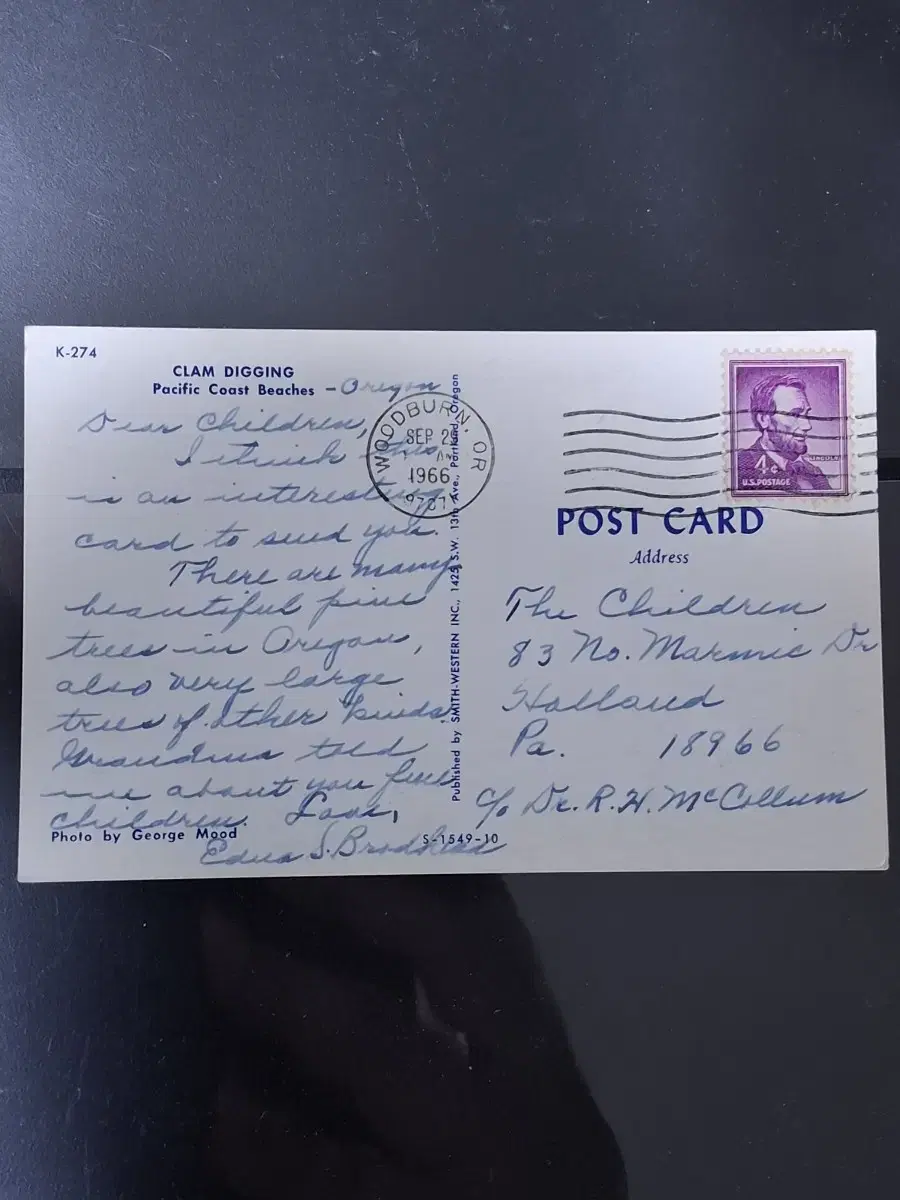 K-274
CLAM DIGGING
Pacific Coast Beaches - Oregon
Dear Children,
I think this
is an interesting
card to send you.
There are many
beautiful pine
trees in Oregon,
also very large
trees of other kinds.
Grandma told
me about you fine
children. Love,
Edna S. Brodhead
Photo by George Mood
S-1549-10
Published by SMITH-WESTERN INC., 1425 S.W. 13th Ave., Portland, Oregon
WOODBURN, OR
SEP 2
AM
1966
LINCOLN
4¢
U.S. POSTAGE
POST CARD
Address
The Children
83 No. Marmic Dr
Holland
Pa. 18966
c/o Dr. R. H. McCollum